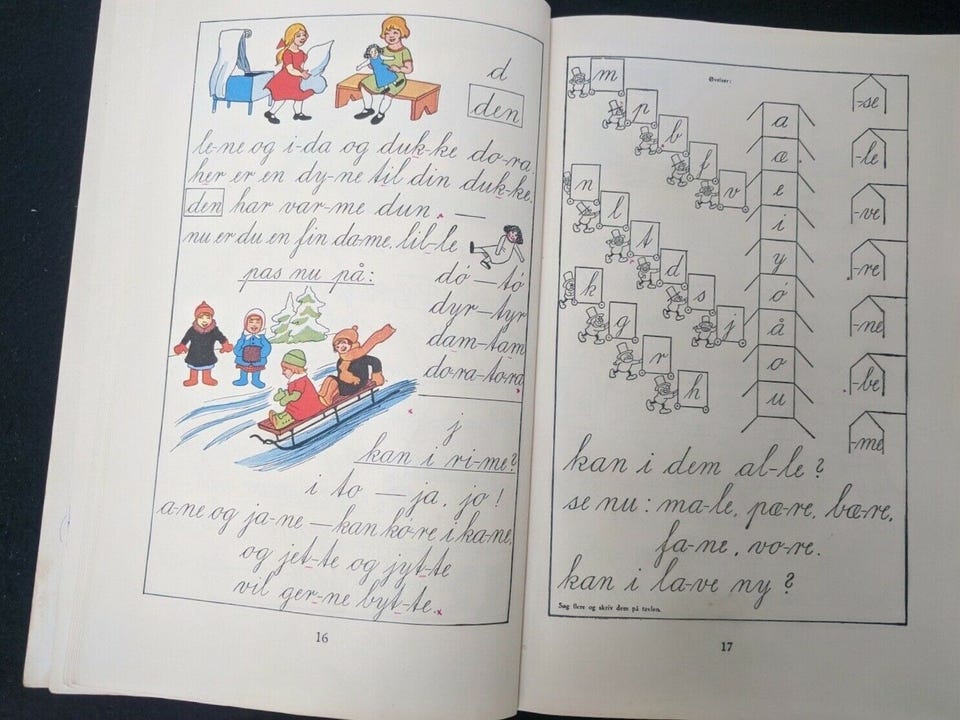 d
den
le-ne og i-da og duk-ke do-ra.
her er en dy-ne til din duk-ke.
den har var-me dun. —
nu er du en fin da-me, lil-le
pas nu på:
dó — tó
dyr — tyr
dam - tam
do-ra - to-ra
j
kan i ri-me?
i to — ja, jo!
a-ne og ja-ne — kan kó-re i ka-ne,
og jet-te og jyt-te
vil ger-ne byt-te.
16
Øvelser:
m
p
b
f
v
n
l
t
d
s
j
k
g
r
h
a
æ
e
i
y
ó
å
o
u
-se
-le
-ve
-re
-ne
-be
-me
kan i dem al-le?
se nu: ma-le, pæ-re, bæ-re,
fa-ne, vo-re.
kan i la-ve ny?
Søg flere og skriv dem på tavlen.
17